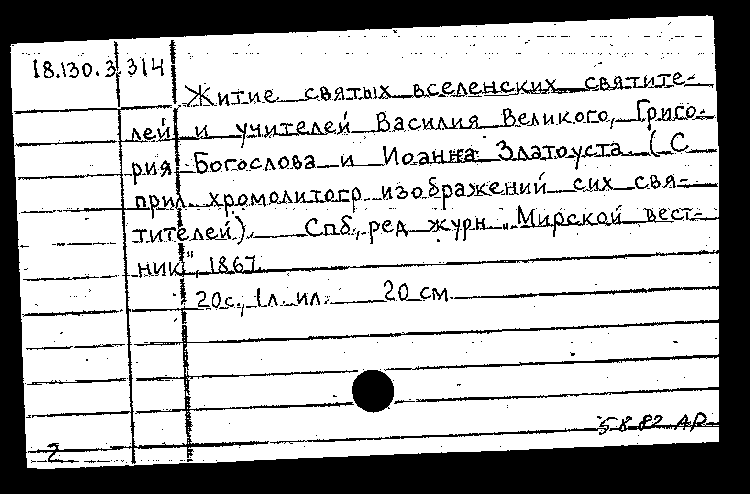 18.130.3.314
Житие святых вселенских святите-
лей и учителей Василия Великого, Григо-
рия Богослова и Иоанна Златоуста. (С
прил. хромолитогр. изображений сих свя-
тителей). Спб., ред. журн. „Мирской вест-
ник", 1867.
20с., 1л. ил. 20 см.
5 8 82 АР
2